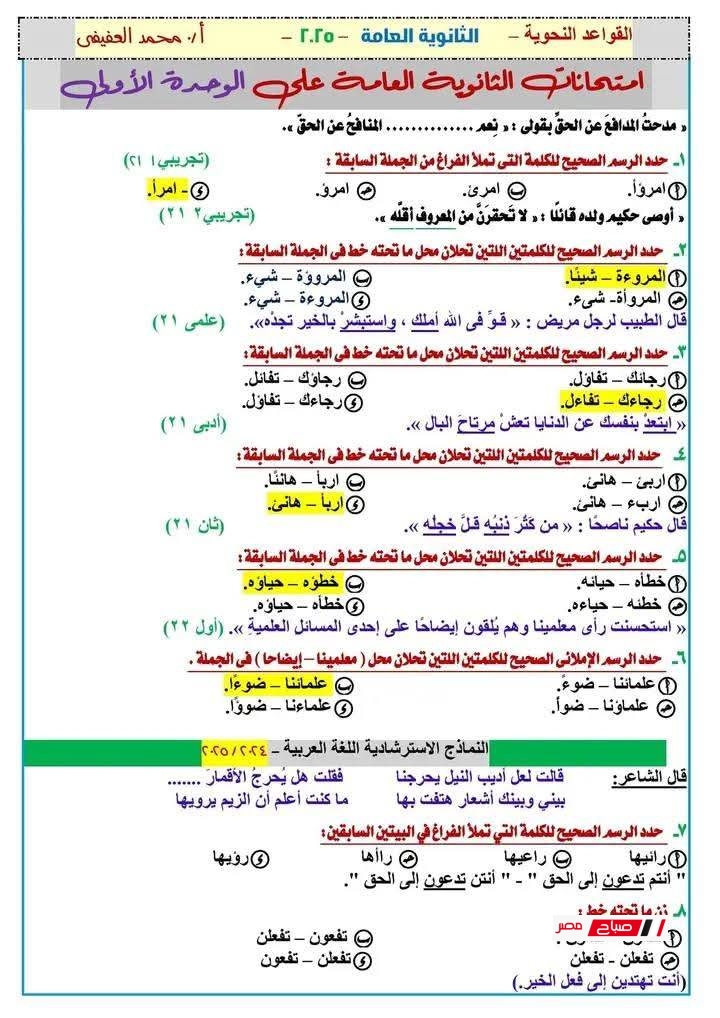 القواعد النحوية – الثانوية العامة – ٢٠٢٥ – أ/ محمد العفيفى
امتحانات الثانوية العامة على الوحدة الأولى
« مدحتُ المدافعَ عن الحقِّ بقولى : « نِعم .............. المنافحُ عن الحقّ ».
١ـ حدد الرسم الصحيح للكلمة التى تملأ الفراغ من الجملة السابقة : (تجريبي١ ٢١)
أ امرؤأ. ب امرئ. جـ امرؤ. د - امرأ.
« أوصى حكيم ولده قائلًا : « لا تَحقرَنَّ من المعروف أقلَّه ». (تجريبي٢ ٢١)
٢ـ حدد الرسم الصحيح للكلمتين اللتين تحلان محل ما تحته خط فى الجملة السابقة:
أ المروءة – شيئًا. ب المروؤة – شيء.
جـ المروأة– شىء. د المروءة – شيء.
قال الطبيب لرجل مريض : « قـوِّ فى الله أملك ، واستبشرْ بالخير تجدْه». (علمى ٢١)
٣ـ حدد الرسم الصحيح للكلمتين اللتين تحلان محل ما تحته خط فى الجملة السابقة:
أ رجائك – تفاؤل. ب رجاؤك – تفائل.
جـ رجاءك – تفاءل. د رجاءك – تفاؤل.
« ابتعدْ بنفسك عن الدنايا تعشْ مرتاحَ البال ». (أدبى ٢١)
٤ـ حدد الرسم الصحيح للكلمتين اللتين تحلان محل ما تحته خط فى الجملة السابقة:
أ اربئ – هانئ. ب اربأ – هانئًا.
جـ اربء – هانئ. د اربأ – هانئ.
قال حكيم ناصحًا : « من كَثُرَ ذنبُه قـلَّ خجلُه ». (ثان ٢١)
٥ـ حدد الرسم الصحيح للكلمتين اللتين تحلان محل ما تحته خط فى الجملة السابقة:
أ خطأه – حيائه. ب خطؤه – حياؤه.
جـ خطئه – حياءه. د خطأه – حياؤه.
« استحسنت رأى معلمينا وهم يُلقون إيضاحًا على إحدى المسائل العلميةِ ». (أول ٢٢)
٦ـ حدد الرسم الإملائى الصحيح للكلمتين اللتين تحلان محل ( معلمينا – إيضاحا ) فى الجملة .
أ علمائنا – ضوءً. ب علمائنا – ضوءًا.
جـ علماؤنا – ضوأ. د علماءنا – ضووًا.
النماذج الاسترشادية اللغة العربية – ٢٠٢٤ / ٢٠٢٥
قال الشاعر: قالت لعل أديب النيل يحرجنا فقلت هل يُحرجُ الأقمارَ .......
بيني وبينك أشعار هتفت بها ما كنت أعلم أن الزيم يرويها
٧ـ حدد الرسم الصحيح للكلمة التي تملأ الفراغ في البيتين السابقين:
أ رائيها ب راعيها جـ راأها د رؤيها
" أنتم تدعون إلى الحق " - " أنتن تدعون إلى الحق ".
٨ـ زن ما تحته خط :
صباح مصر
ب تفعون – تفعلن
جـ تفعلن - تفعلن د تفعلن – تفعون
(أنت تهتدين إلى فعل الخير.)